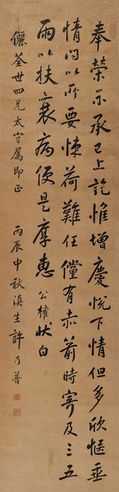 奉榮示承已上訖惟增慶悅下情但多欣愜垂
情問以所要悚荷難任儻有赤箭時寄及三五
兩以扶衰病便是厚惠 公權狀白
儷荃世四兄太守屬即正
丙辰中秋滇生許乃普